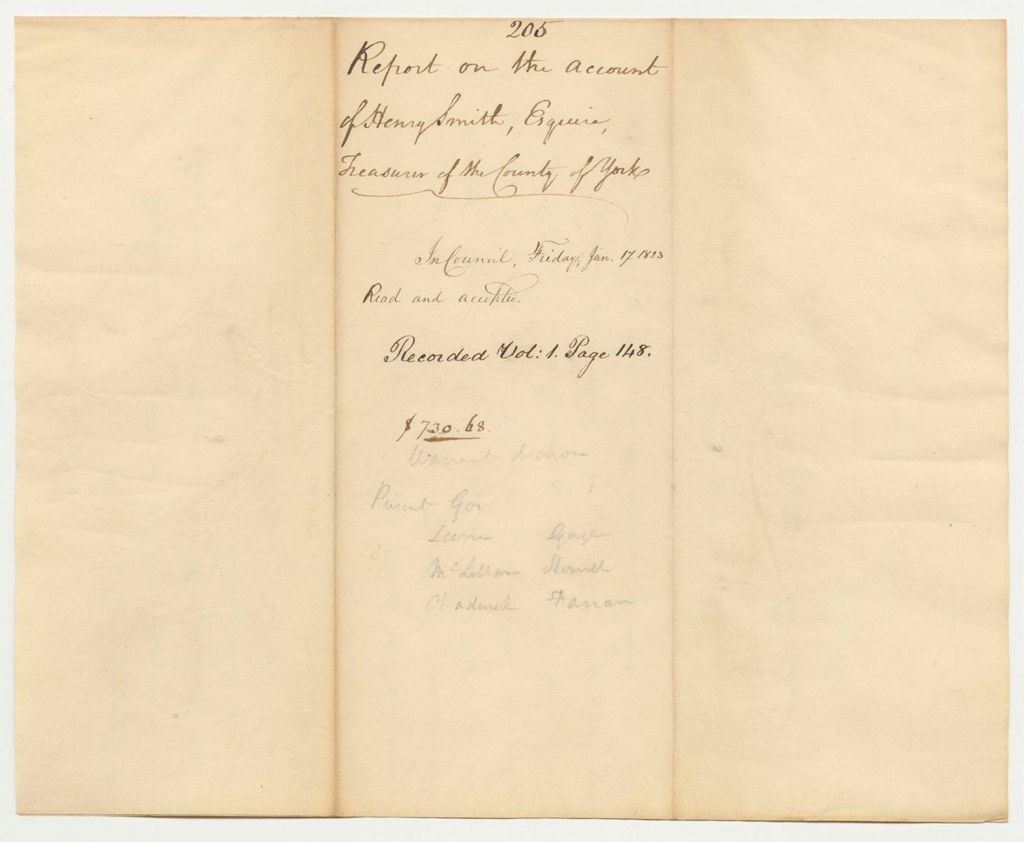 205
Report on the account
of Henry Smith, Esquire,
Treasurer of the County of York
In Council, Friday, Jan. 17. 1823
Read and accepted.
Recorded Vol: 1. Page 148.
$730.68.
Warrant drawn
Present Gov
Gage
McLellan
Chadwick Farrar